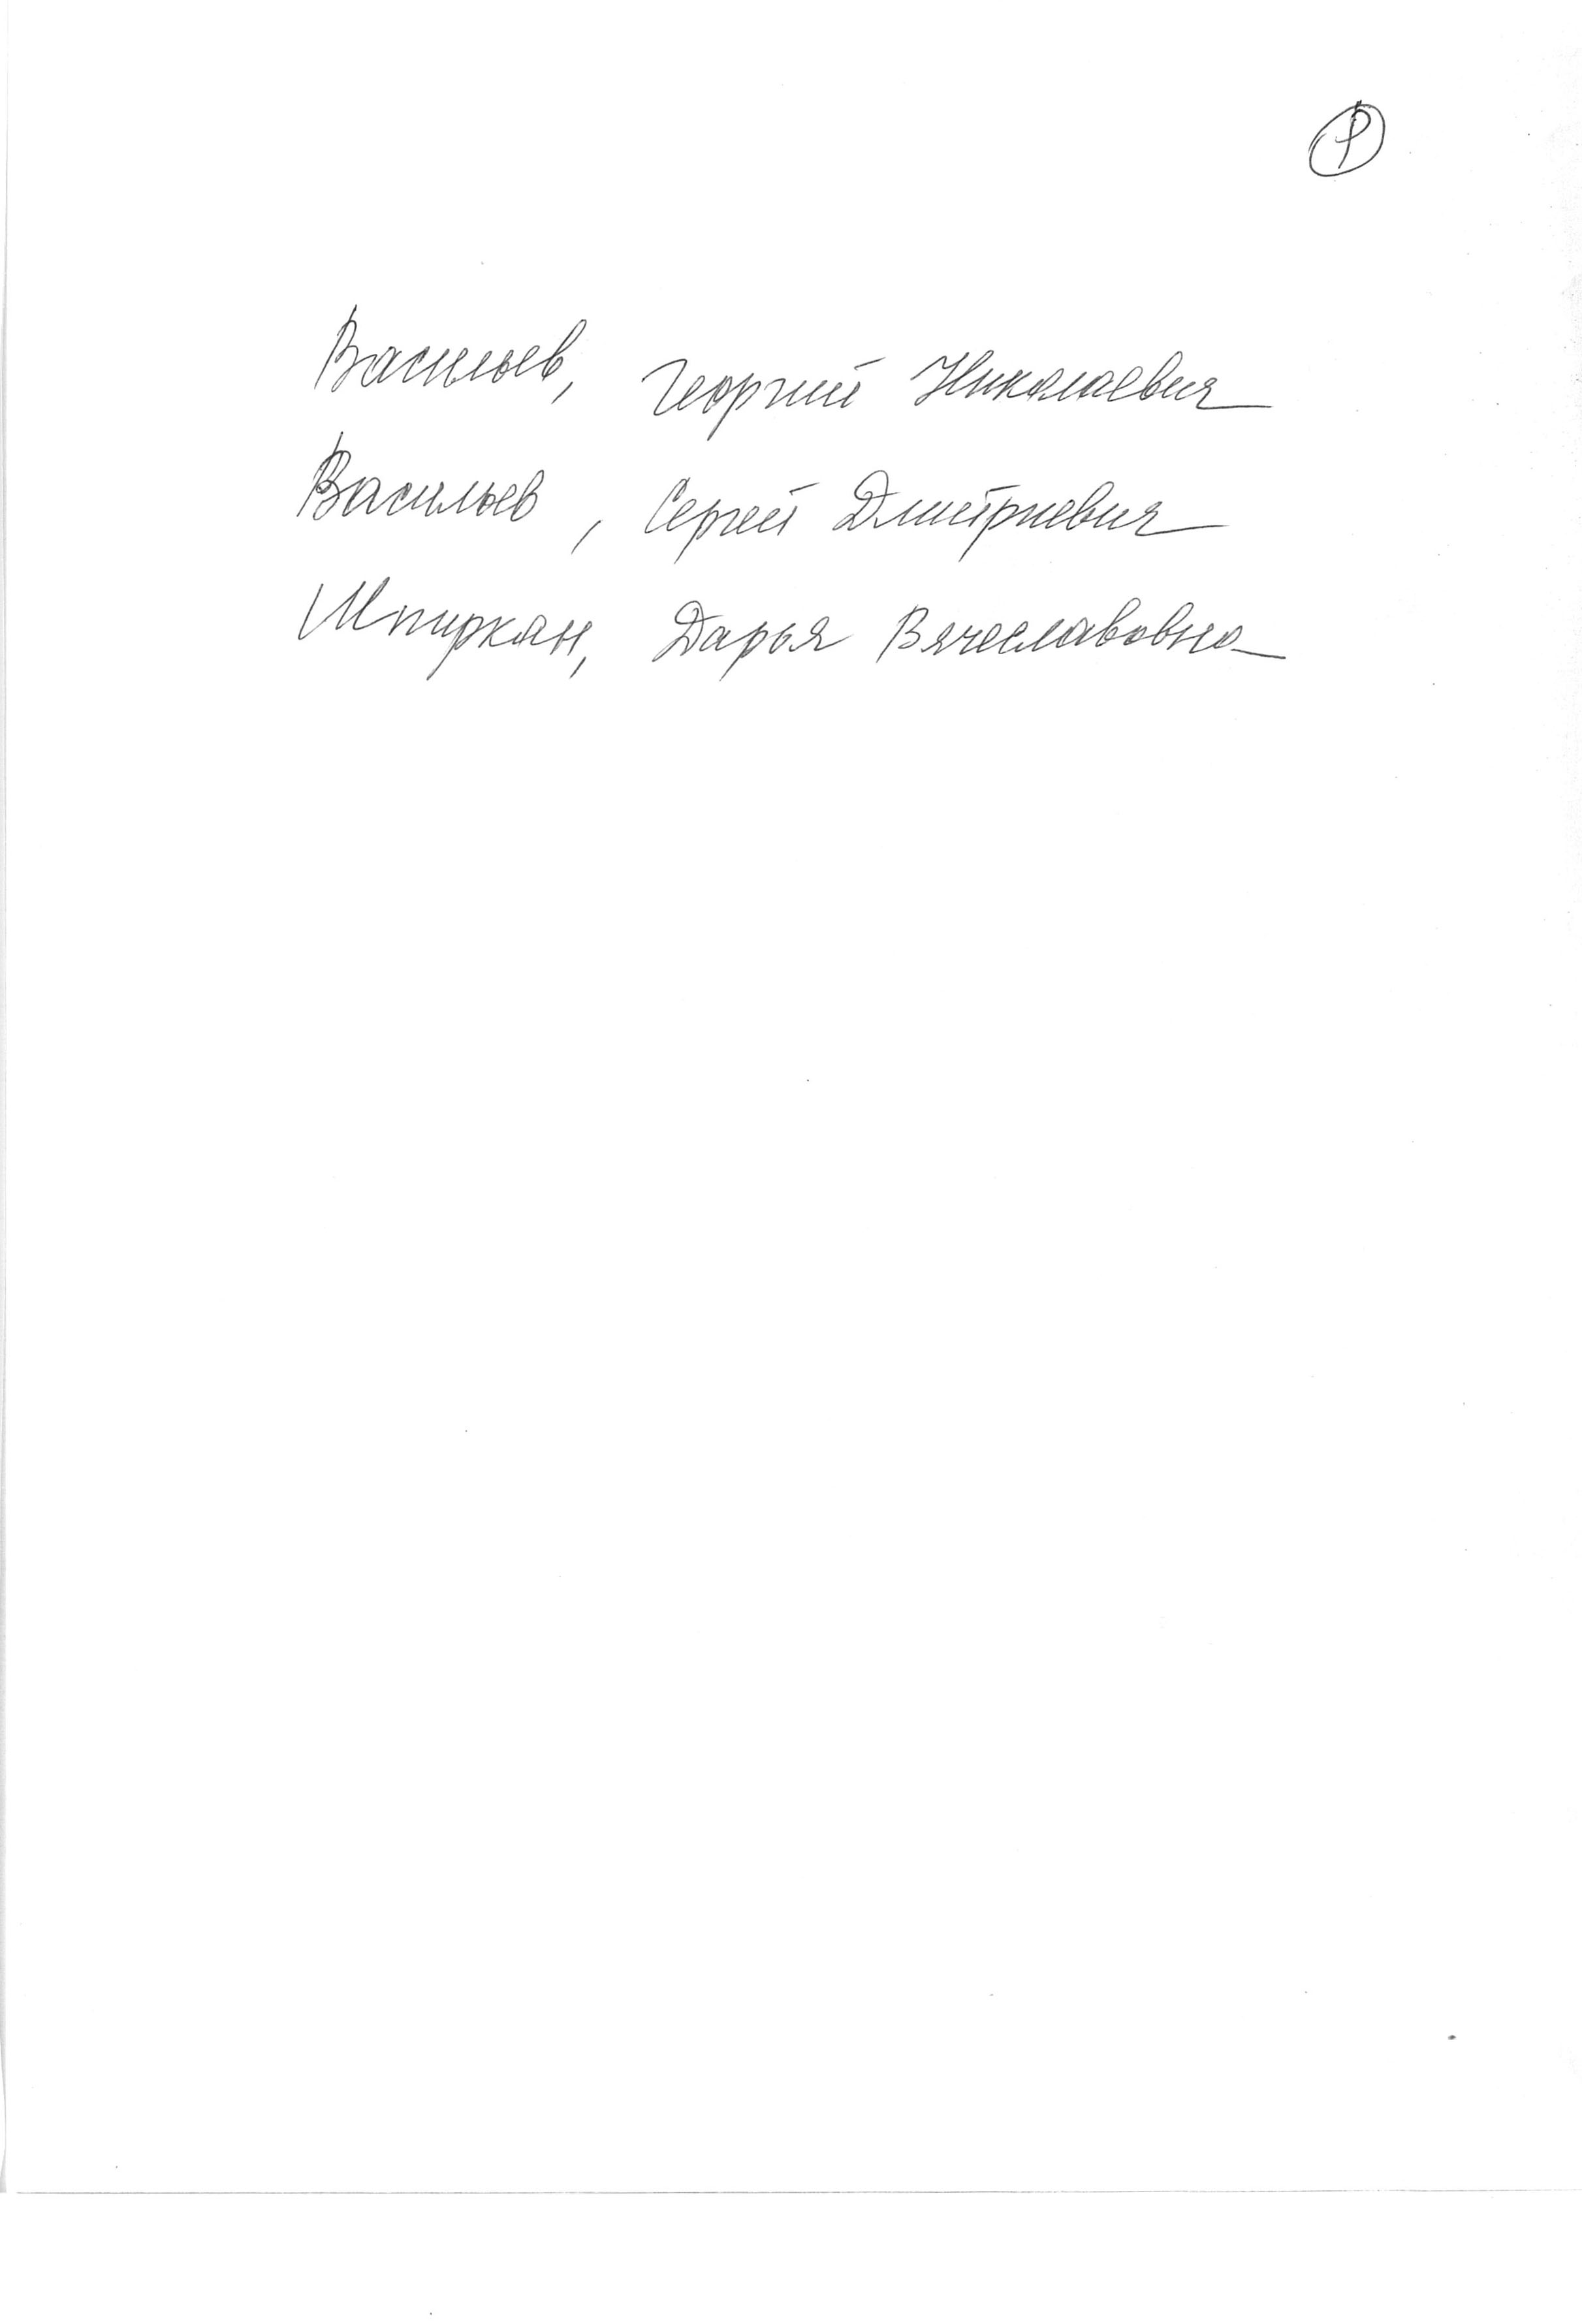 Васильев, Георгий Николаевич
Васильев, Сергей Дмитриевич
Шпиркан, Дарья Вячеславовна